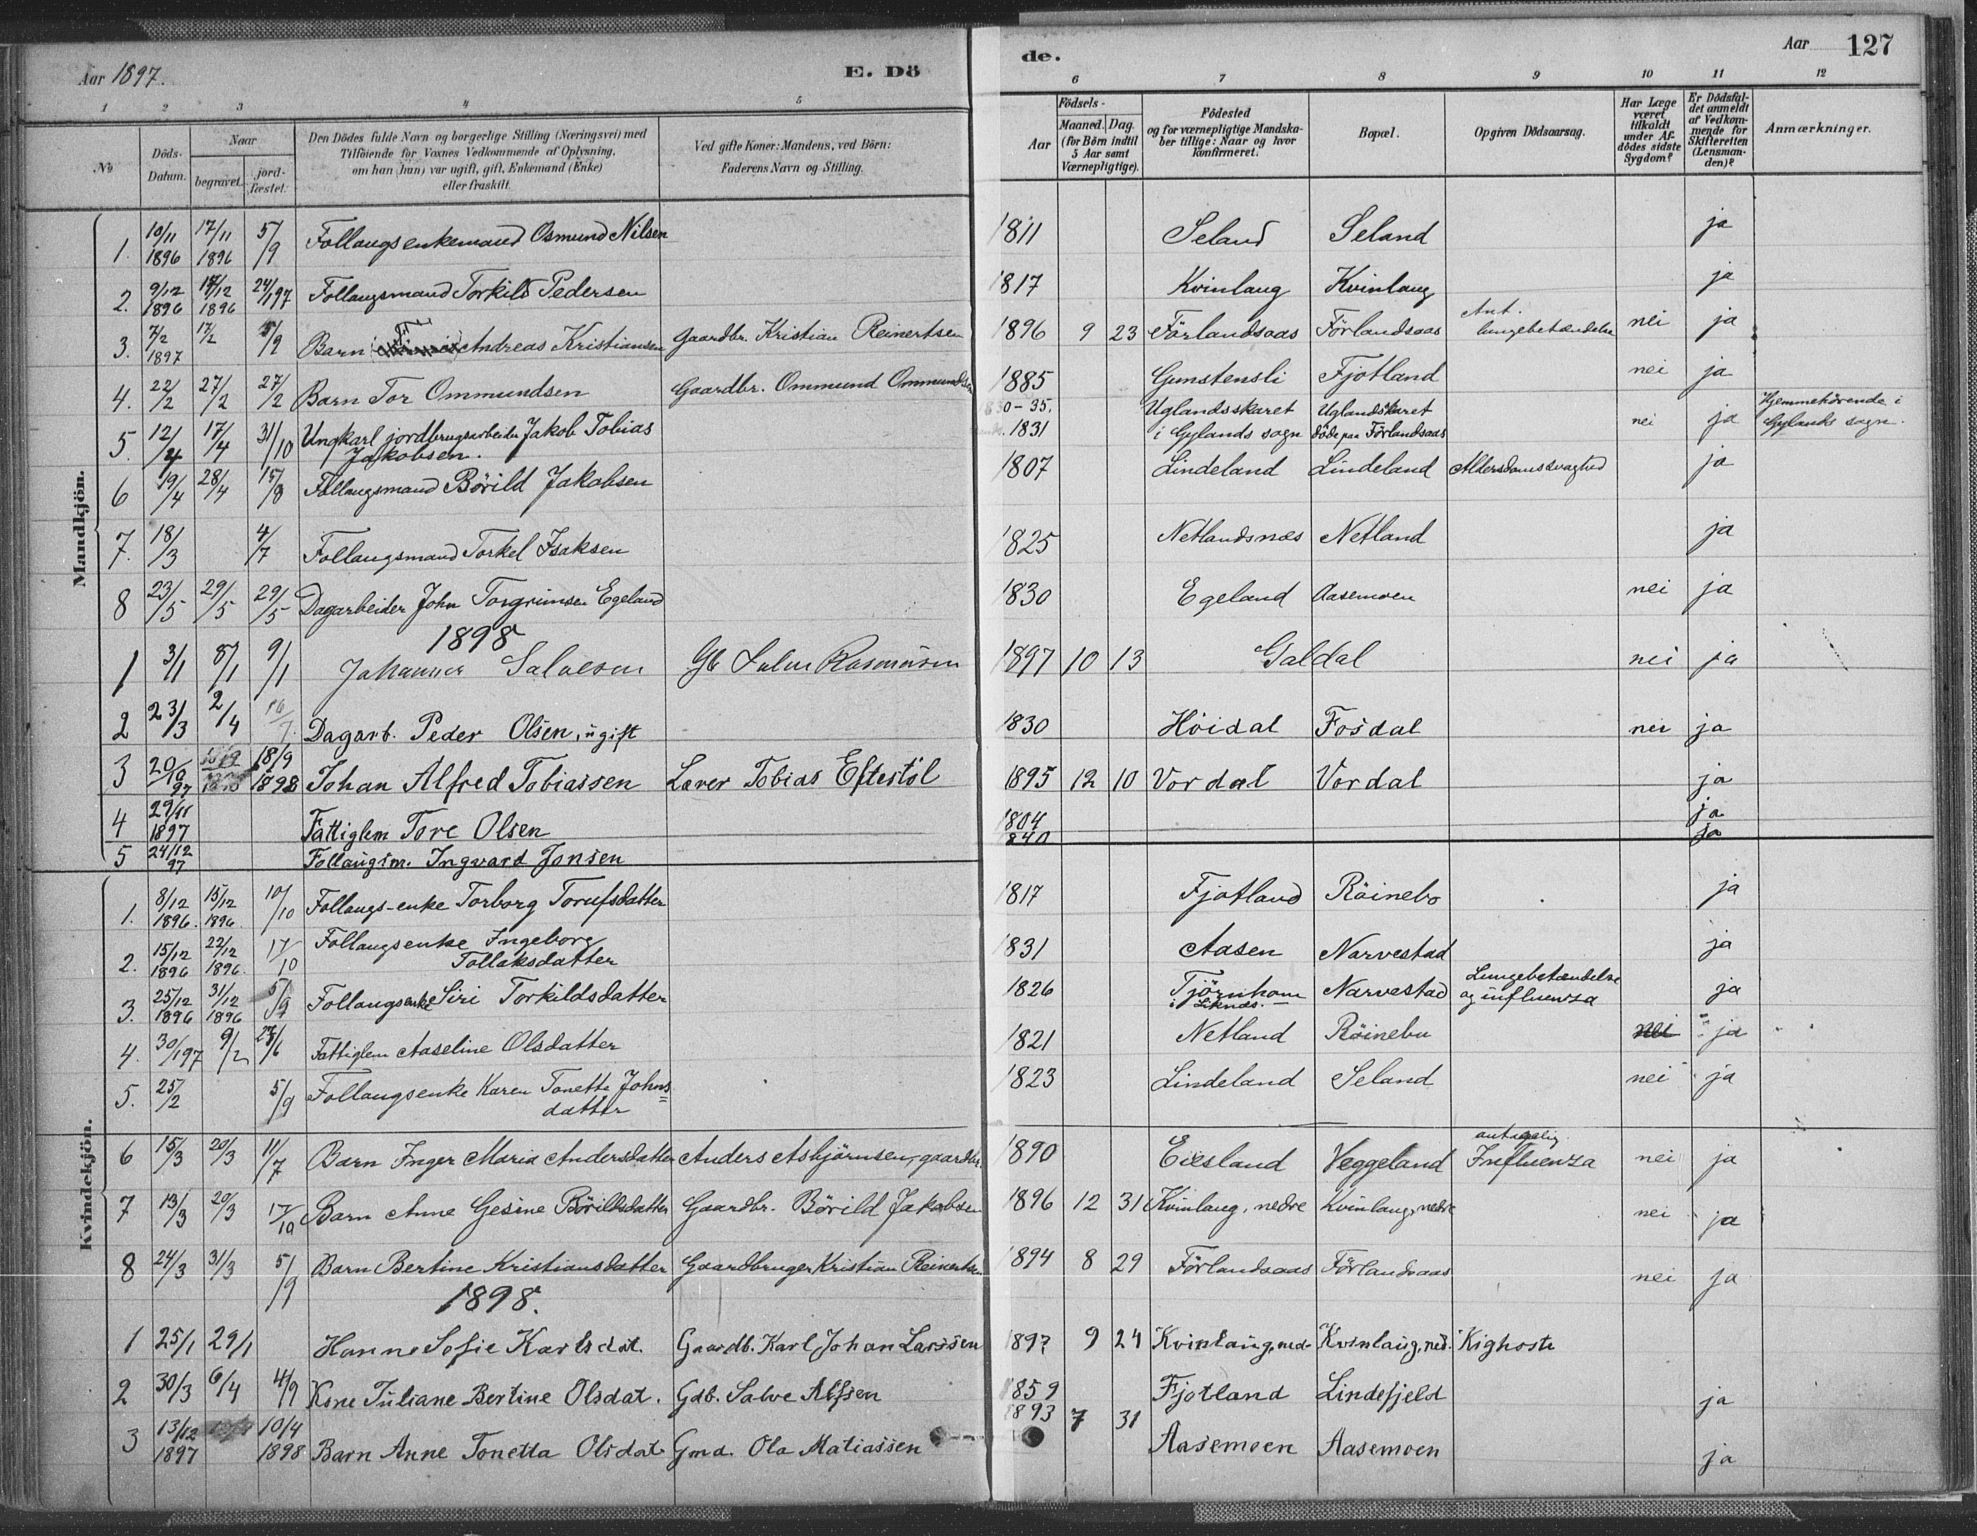 Aar 1897.
E. Dö
de.
Aar 127
1 2 3 4 5 6 7 8 9 10 11 12
No
Döds-Datum.
Naar
begravet.
jord-fæstet.
Den Dödes fulde Navn og borgerlige Stilling (Næringsvei) med
Tilföiende for Voxnes Vedkommende af Oplysning,
om han (hun) var ugift, gift, Enkemand (Enke)
eller fraskilt.
Ved gifte Koner: Mandens, ved Börn:
Faderens Navn og Stilling.
Födsels-
Aar
Maaned. Dag.
(for Börn indtil
5 Aar samt
Værnepligtige).
Födested
og for værnepligtige Mandska-
ber tillige: Naar og hvor
konfirmeret.
Bopæl.
Opgiven Dödsaarsag.
Har Læge
været
tilkaldt
under Af-
dödes sidste
Sygdom?
Er Dödsfal-
det anmeldt
af Vedkom-
mende for
Skifteretten
(Lensman-
den)?
Anmærkninger.
Mandkjön.
1. 10/11 1896 17/11 1896 5/9 Follaugsenkemand Osmund Nilsen 1811 Seland Seland ja
2. 9/12 1896 17/12 1896 24/1 97 Follaugsmand Torkild Pedersen 1817 Kvinlaug Kvinlaug ja
3. 7/2 1897 17/2 5/9 Barn Andreas Kristiansen Gaardbr. Kristian Reinertsen 1896 9 23 Förlandsaas Förlandsaas Ant. lungebetændelse nei ja
4. 22/2 27/2 27/2 Barn Tor Ommundsen Gaardbr. Ommund Ommundsen 1885 Gunstensli Fjotland nei ja
5. 12/4 17/4 31/10 Ungkarl jordbrugsarbeider Jakob Tobias Jakobsen. 30-35. 1831 Uglandsskaret i Gylands sogn Uglandskaret döde paa Förlandsaas nei ja Hjemmehörende i Gylands sogn.
6 19/4 28/4 15/8 Follaugsmand Börild Jakobsen 1807 Lindeland Lindeland Aldersdomssvaghed ja
7. 18/3 4/7 Follaugsmand Torkel Isaksen 1825 Netlandsnæs Netland ja
8 23/5 29/5 29/5 Dagarbeider John Torgrimsen Egeland 1830 Egeland Aasemoen nei ja
1898
1 3/1 8/1 9/1 Johannes Salvesen Gb Salve Rasmusen 1897 10 13 Galdal nei ja
2 23/3 2/4 16/7 Dagarb. Peder Olsen, ugift 1830 Höidal Fosdal nei ja
3 20/9 97 18/9 1898 Johan Alfred Tobiassen Lærer Tobias Eftestöl 1895 12 10 Vordal Vordal ja
4 29/11 1897 Fattiglem Tore Olsen 1804 ja
5 24/12 97 Follaugsm. Ingvard Jonsen 1840 ja
Kvindekjön.
1. 8/12 1896. 15/12 1896. 10/10 Follaugs-enke Torborg Torufsdatter 1817 Fjotland Röinebo ja
2. 15/12 1896 22/12 1896. 17/10 Follaugsenke Ingeborg Tollaksdatter 1831 Aasen Narvestad ja
3. 25/12 1896 31/12 1896 5/9 Follaugsenke Siri Torkildsdatter 1826 Tjörnhom i Liknes. Narvestad Lungebetændelse og influenza ja
4. 30/1 97 9/2 /6 Fattiglem Aaseline Olsdatter 1821 Netland Röinebu nei ja
5. 25/2 5/9 Follaugsenke Karen Tonette Johns=datter 1823 Lindeland Seland nei ja
6 15/3 20/3 11/7 Barn Inger Maria Andersdatter Anders Asbjörnsen, gaardbr. 1890 Eiesland Veggeland antagelig Influenza nei ja
7 13/3 20/3 17/10 Barn Anne Gesine Börildsdatter Gaardbr. Börild Jakobsen 1896 12 31 Kvinlaug, nedre Kvinlaug, nedre nei ja
8 24/3 31/3 5/9 Barn Bertine Kristiansdatter Gaardbruger Kristian Reinertsen 1894 8 29 Förlandsaas Förlandsaas nei ja
1898.
1 25/1 29/1 Hanne Sofie Karlsdat. Gaardb. Karl Johan Larssen 1897 9 24 Kvinlaug, ned. Kvinlaug, ned. Kighoste
2 30/3 6/4 4/9 Kone Juliane Bertine Olsdat. Gdb. Salve Alfsen 1859 Fjotland Lindefjeld ja
3 13/12 1897 10/4 1898 Barn Anne Tonetta Olsdat. Gmd. Ola Matiassen 1893 7 31 Aasemoen Aasemoen ja